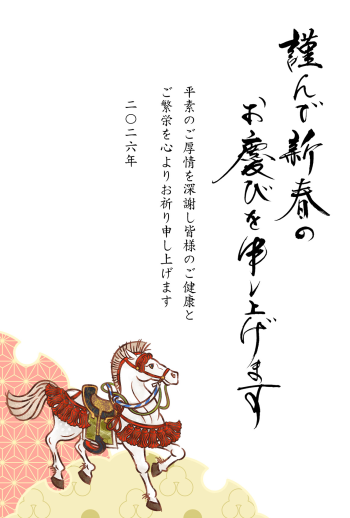 謹んで新春の
お慶びを申し上げます
平素のご厚情を深謝し皆様のご健康と
ご繁栄を心よりお祈り申し上げます
二〇二六年